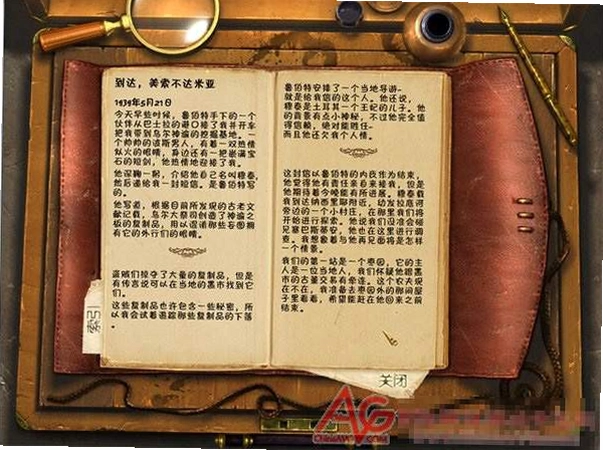 到达，美索不达米亚
1939年5月21日
今天早些时候，鲁佰特手下的一个
伙伴从巴士拉的港口接了我并开车
把我带到乌尔神谕的挖掘基地。一
个帅帅的波斯男人，有着一双热情
似火的眼睛，身边还有一把嵌满宝
石的短剑，他热情地迎接了我。
他深鞠一躬，介绍他自己名叫穆泰，
然后递给我一封短信。是鲁佰特写
的。
他写道，根据目前所发现的古老文
献记载，乌尔大祭司创造了神谕之
板的复制品，用以迷诱那些妄图拥
有它的外行们的眼睛。
盗贼们掠夺了大量的复制品，但是
有传言说可以在当地的黑市找到它
们。
这些复制品也许包含一些秘密，所
以我会试着追踪那些复制品的下落
。
鲁佰特安排了一个当地导游-
就是给我信的这个人。他还说，
穆泰是土耳其一个王妃的儿子。他
的背景有点小神秘，不过他完全值
得信赖，绝对能胜任-
而且他还欠我个人情。
这封信以鲁佰特的内疚作为结束，
他觉得他有责任亲自来接我，但是
他期待着今晚能有所进展。穆泰载
我到达纳西里耶附近，幼发拉底河
旁边的一个小村庄，在那里我们将
开始进行探索。他说我们没准会碰
见塞巴斯蒂安，他也在这里进行调
查。我想象着与他再见面将是怎样
一个情景。
我们的第一站是一个枣园，它的主
人是一位当地人，我们怀疑他跟黑
市的古董交易有牵连。这个农夫现
在不在，我准备去枣园外的那间屋
子里看看，希望能赶在他回来之前
结束。
索引
关闭
AG
ChinaAVG.COM